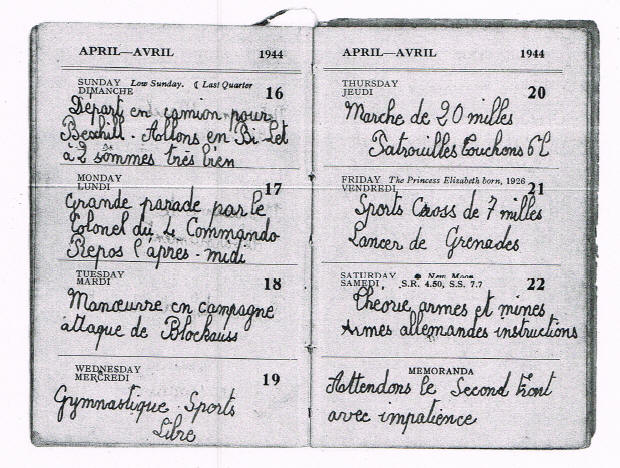 APRIL—AVRIL 1944
SUNDAY Low Sunday. ☾ Last Quarter
DIMANCHE 16
Départ en camion pour
Bexhill - Allons en Bi-Let
à 2 sommes très bien
MONDAY
LUNDI 17
Grande parade par le
Colonel du 4 Commando
Repos l'après-midi
TUESDAY
MARDI 18
Manœuvre en campagne
attaque de Blockauss
WEDNESDAY
MERCREDI 19
Gymnastique Sports
Libre
APRIL—AVRIL 1944
THURSDAY
JEUDI 20
Marche de 20 milles
Patrouilles Touchons 6£
FRIDAY The Princess Elizabeth born, 1926
VENDREDI 21
Sports Cross de 7 milles
Lancer de Grenades
SATURDAY ● New Moon
SAMEDI, S.R. 4.50, S.S. 7.7 22
Théorie, armes et mines
Armes allemandes instructions
MEMORANDA
Attendons le Second Front
avec impatience